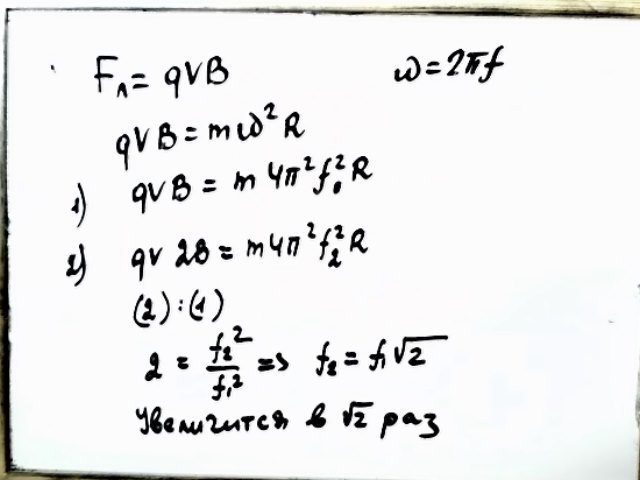 Fл = qVB ω = 2πf
qVB = mω²R
1) qVB = m 4π² f₁² R
2) qV 2B = m 4π² f₂² R
(2) : (1)
2 = f₂²/f₁² => f₂ = f₁√2
Увеличится в √2 раз